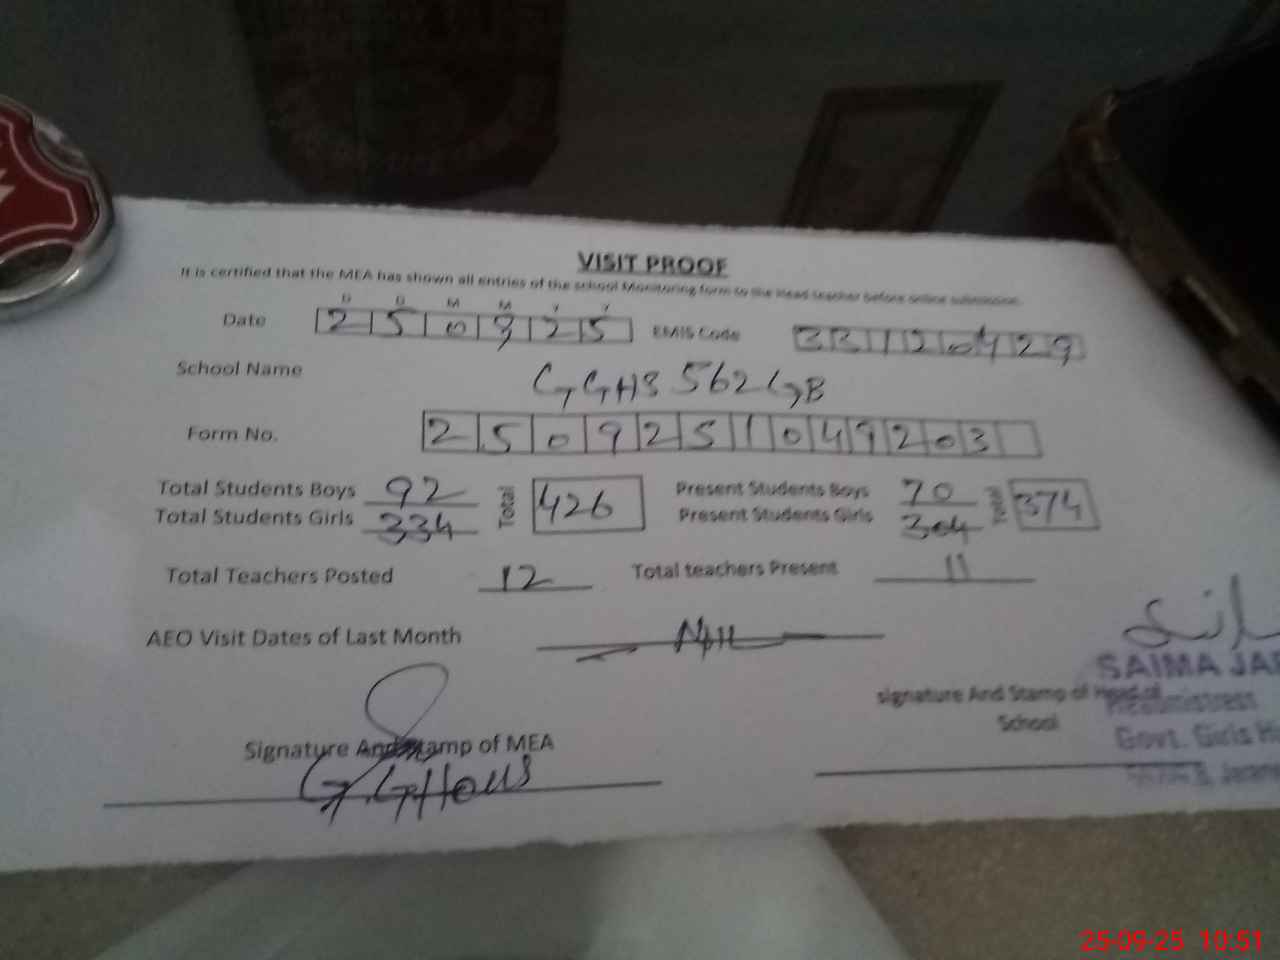 VISIT PROOF
It is certified that the MEA has shown all entries of the school Monitoring form to the Head teacher before online submission.
D D M M Y Y
Date 250925 EMIS Code 33120429
School Name GGHS 562 GB
Form No. 2509251049203
Total Students Boys 92 Total 426 Present Students Boys 70 Total 374
Total Students Girls 334 Present Students Girls 304
Total Teachers Posted 12 Total teachers Present 11
AEO Visit Dates of Last Month Nil
SAIMA JA
signature And Stamp of Head of School
Headmistress
Govt. Girls Hi
Signature And Stamp of MEA
G.GHous
25-09-25 10:51